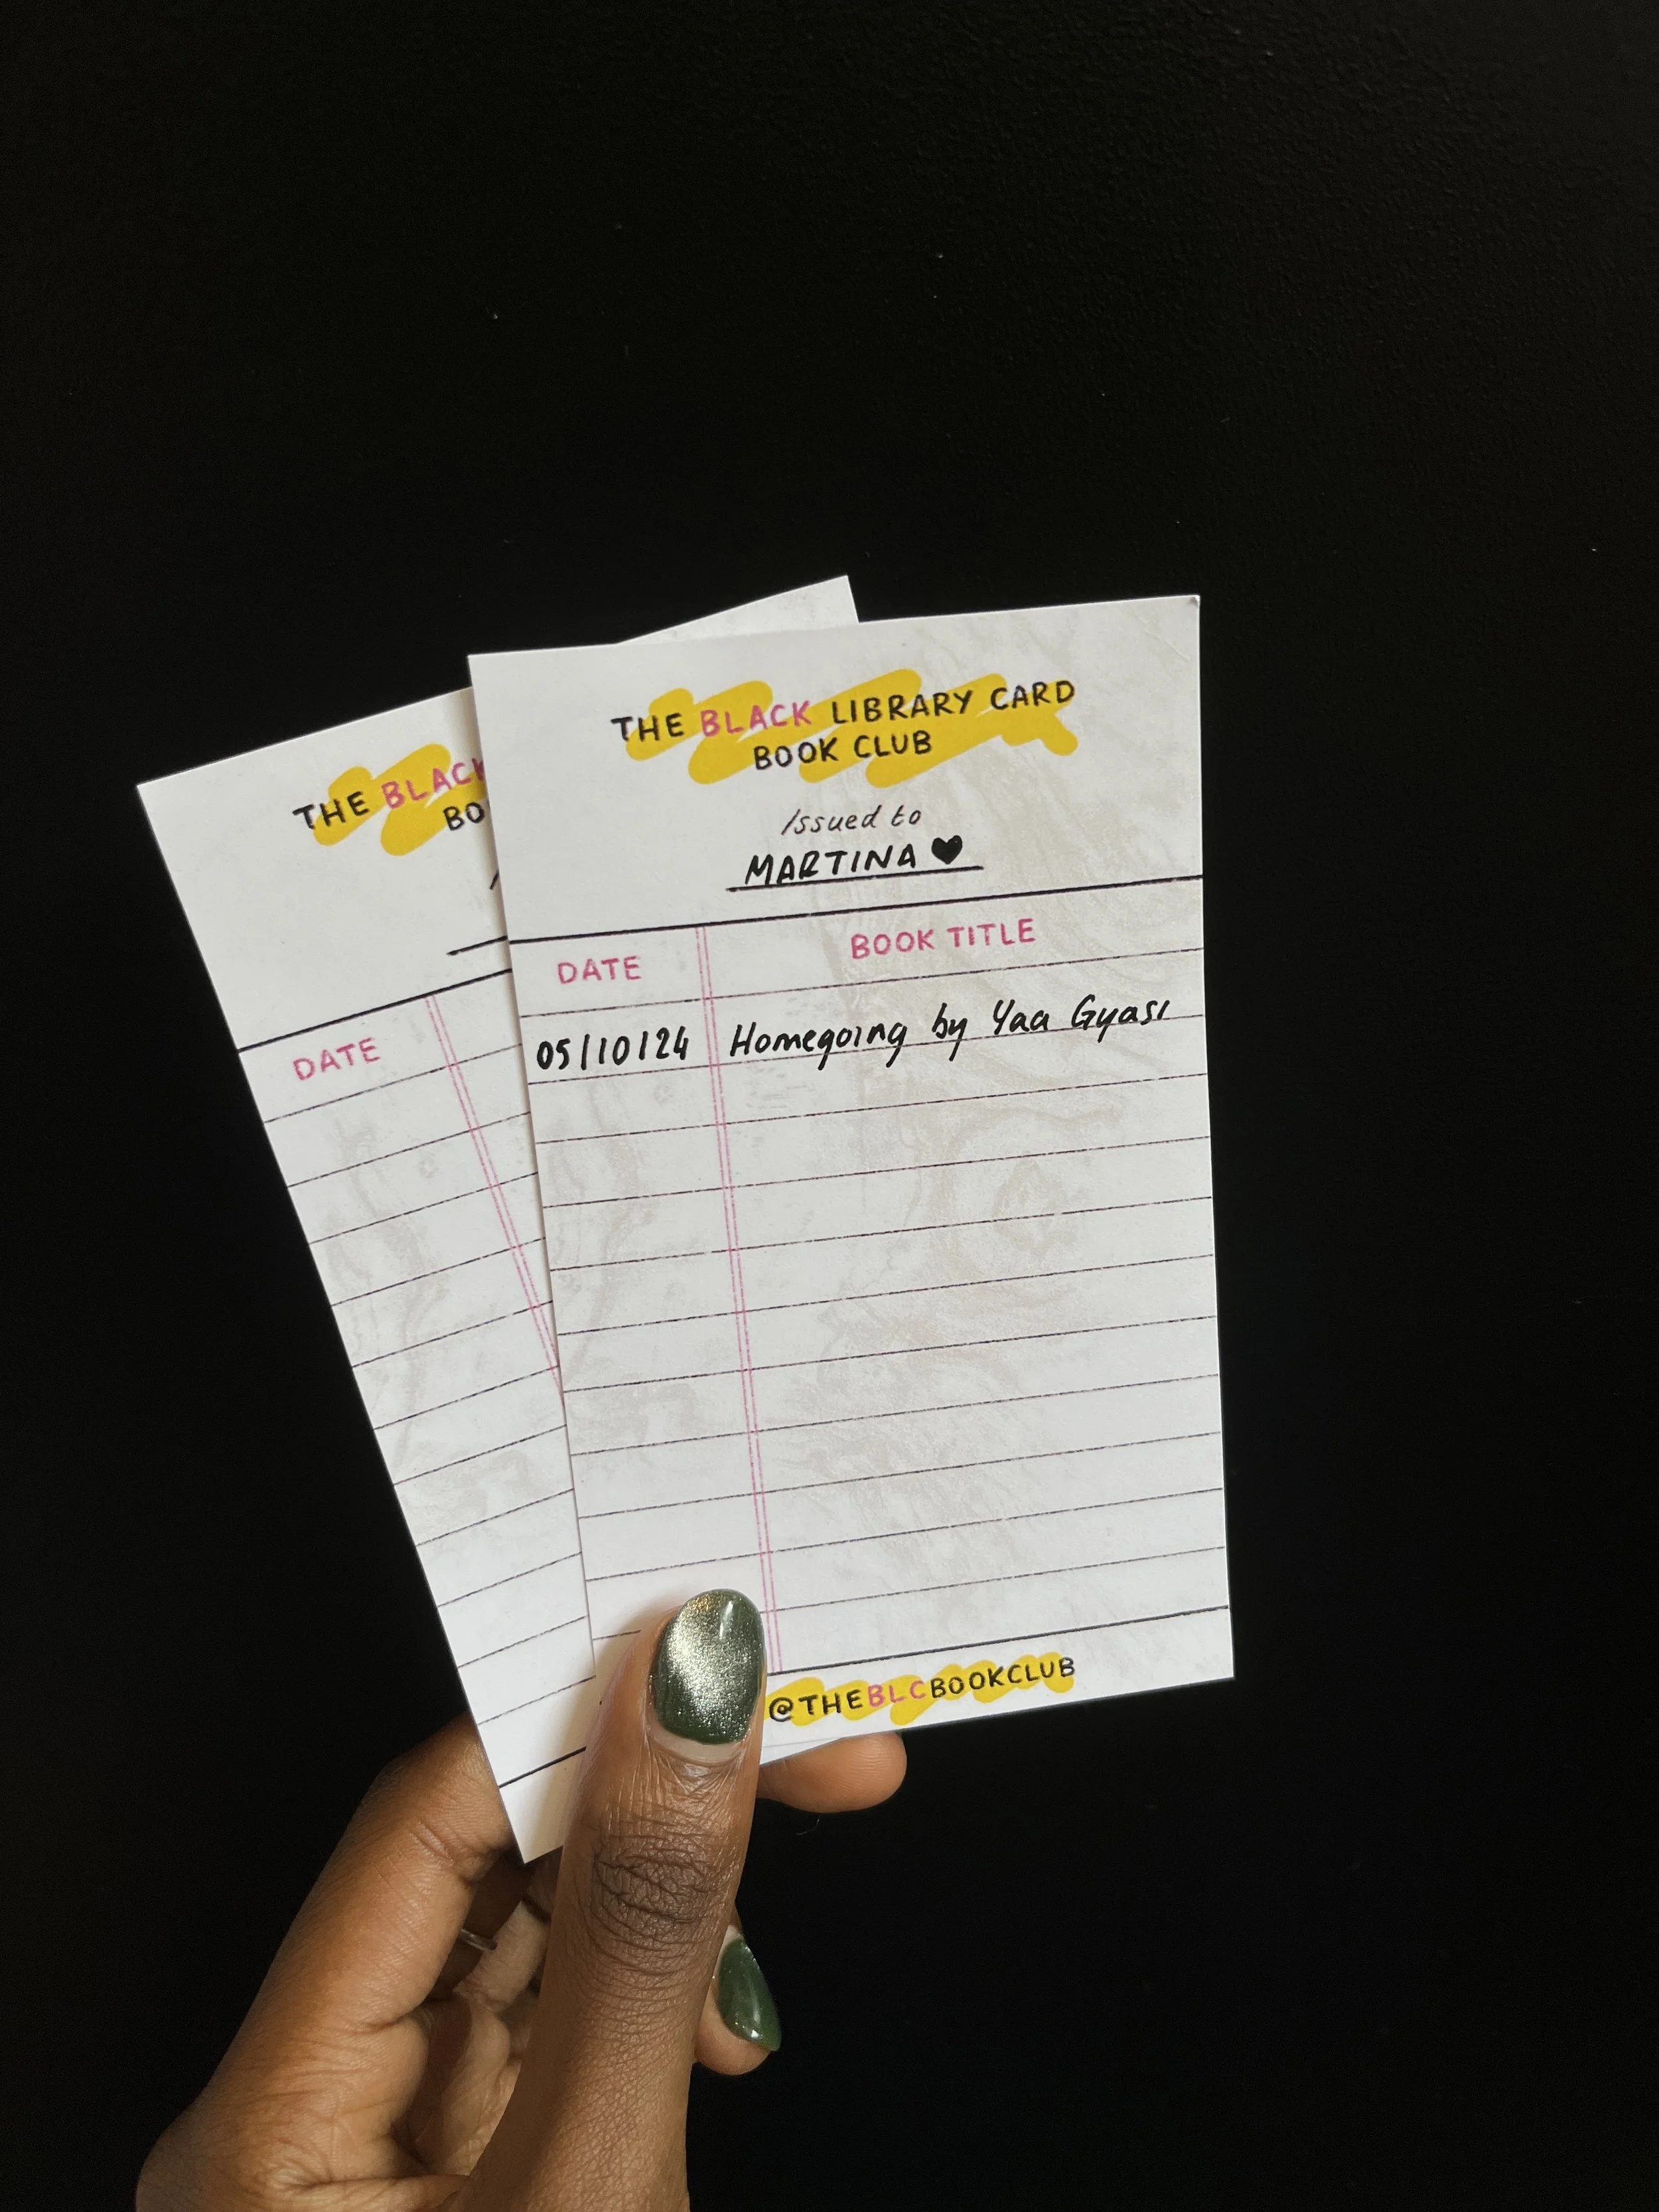 THE BLACK LIBRARY CARD
BOOK CLUB
Issued to
MARTINA ♥
DATE BOOK TITLE
05/10/24 Homegoing by Yaa Gyasi
@THEBLCBOOKCLUB
THE BLACK
BO
DATE